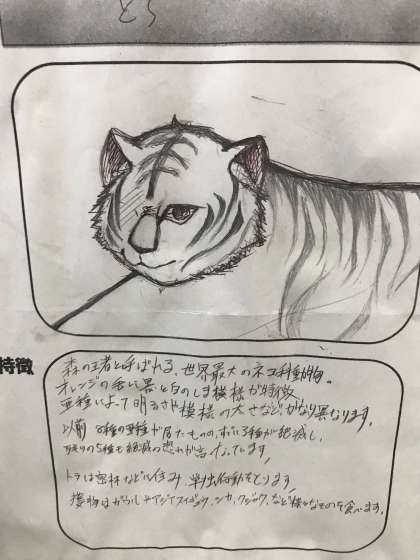 とら
特徴
森の王者と呼ばれる、世界最大のネコ科動物。
オレンジの毛に黒と白のしま模様が特徴。
亜種によって明るさや模様の太さなどがなり異なります。
以前 8種の亜種が居たものの、すでに3種が絶滅し、
残りの5種も絶滅の恐れが
トラは密林などに住み、単独行動をとります。
獲物はガウルやアジアスイギュウ、シカ、クジャク、など様々なものを食べます。